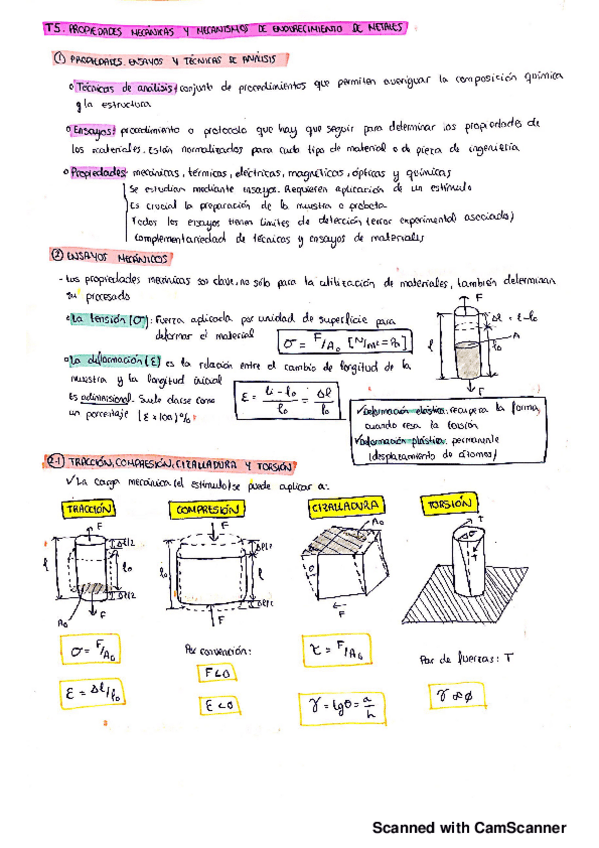 T5. PROPIEDADES MECÁNICAS Y MECANISMOS DE ENDURECIMIENTO DE METALES
① PROPIEDADES, ENSAYOS Y TÉCNICAS DE ANÁLISIS
Técnicas de análisis: conjunto de procedimientos que permiten averiguar la composición química
y la estructura
Ensayos: procedimiento o protocolo que hay que seguir para determinar las propiedades de
los materiales. Están normalizados para cada tipo de material o de pieza de ingeniería
Propiedades: mecánicas, térmicas, eléctricas, magnéticas, ópticas y químicas
Se estudian mediante ensayos. Requieren aplicación de un estímulo
Es crucial la preparación de la muestra o probeta
Todos los ensayos tienen límites de detección (error experimental asociado)
Complementariedad de técnicas y ensayos de materiales
② ENSAYOS MECÁNICOS
- Las propiedades mecánicas son clave, no sólo para la utilización de materiales, también determinan
su procesado
La tensión (σ): Fuerza aplicada por unidad de superficie para
deformar el material
σ = F/A₀ [N/m² = Pa]
La deformación (ε) es la relación entre el cambio de longitud de la
muestra y la longitud inicial
Es adimensional. Suele darse como
un porcentaje (ε × 100)%
ε = li - l₀ / l₀ = Δl / l₀
F
Δl = l - l₀
A
l
l₀
F
✓ Deformación elástica: recupera la forma,
cuando cesa la tensión
✓ Deformación plástica: permanente
(desplazamiento de átomos)
2.1 TRACCIÓN, COMPRESIÓN, CIZALLADURA Y TORSIÓN
✓ La carga mecánica (el estímulo) se puede aplicar a:
TRACCIÓN
COMPRESIÓN
CIZALLADURA
TORSIÓN
F
Δl/2
l
l₀
Δl/2
A₀
F
σ = F/A₀
ε = Δl/l₀
F
Δl/2
l₀
l
Δl/2
F
Por convención:
F < 0
ε < 0
A₀
F
θ
F
τ = F/A₀
γ = tgθ = a/h
T
T
Par de fuerzas: T
γ ∝ φ
Scanned with CamScanner